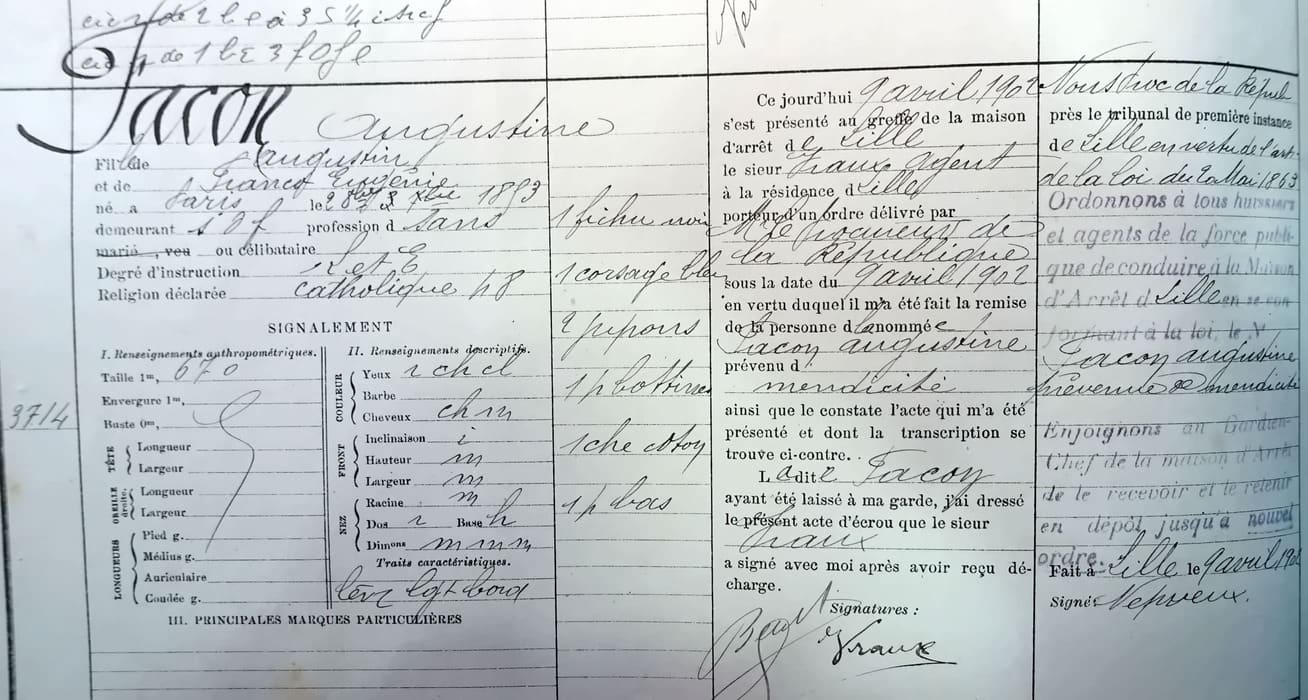 de 1 be 3 fofe
Jacon Augustine
Fille de Augustin
et de Franco Eugénie
né à Paris le 28 8 Xbre 1853
demeurant s Df profession d sans
marié, veu ou célibataire
Degré d'instruction L et E
Religion déclarée catholique 48
SIGNALEMENT
I. Renseignements anthropométriques.
Taille 1m, 670
Envergure 1m,
Buste 0m,
TÊTE
Longueur
Largeur
OREILLE droite.
Longueur
Largeur
LONGUEURS
Pied g.
Médius g.
Auriculaire
Coudée g.
II. Renseignements descriptifs.
COULEUR
Yeux r ch cl
Barbe
Cheveux ch m
FRONT
Inclinaison i
Hauteur m
Largeur m
NEZ
Racine m
Dos r Base h
Dimons m m m
Traits caractéristiques.
III. PRINCIPALES MARQUES PARTICULIÈRES
3714
1 fichu noir
1 corsage bleu
2 jupons
1 p bottines
1 che coton
1 p bas
Ce jourd'hui 9 avril 1902
s'est présenté au greffe de la maison
d'arrêt de Lille
le sieur Vraux agent
à la résidence d Lille
porteur d'un ordre délivré par
Mr le Procureur de
la République
sous la date du 9 avril 1902
en vertu duquel il m'a été fait la remise
de la personne d la nommée
Jacon Augustine
prévenu d
mendicité
ainsi que le constate l'acte qui m'a été
présenté et dont la transcription se
trouve ci-contre.
Ladite Jacon
ayant été laissé à ma garde, j'ai dressé
le présent acte d'écrou que le sieur
Vraux
a signé avec moi après avoir reçu dé-
charge.
Signatures :
Vraux
Nous Proc de la Répub
près le tribunal de première instance
de Lille en vertu de l'art.
de la loi du 20 Mai 1863
Ordonnons à tous huissiers
et agents de la force publi-
que de conduire à la Maison
d'Arrêt d Lille en se con
formant à la loi, le N
Jacon Augustine
prévenue de mendicité
Enjoignons au Gardien-
Chef de la maison d'Arrêt
de le recevoir et le retenir
en dépôt jusqu'à nouvel
ordre.
Fait à Lille le 9 avril 1902
Signé Nepveux.